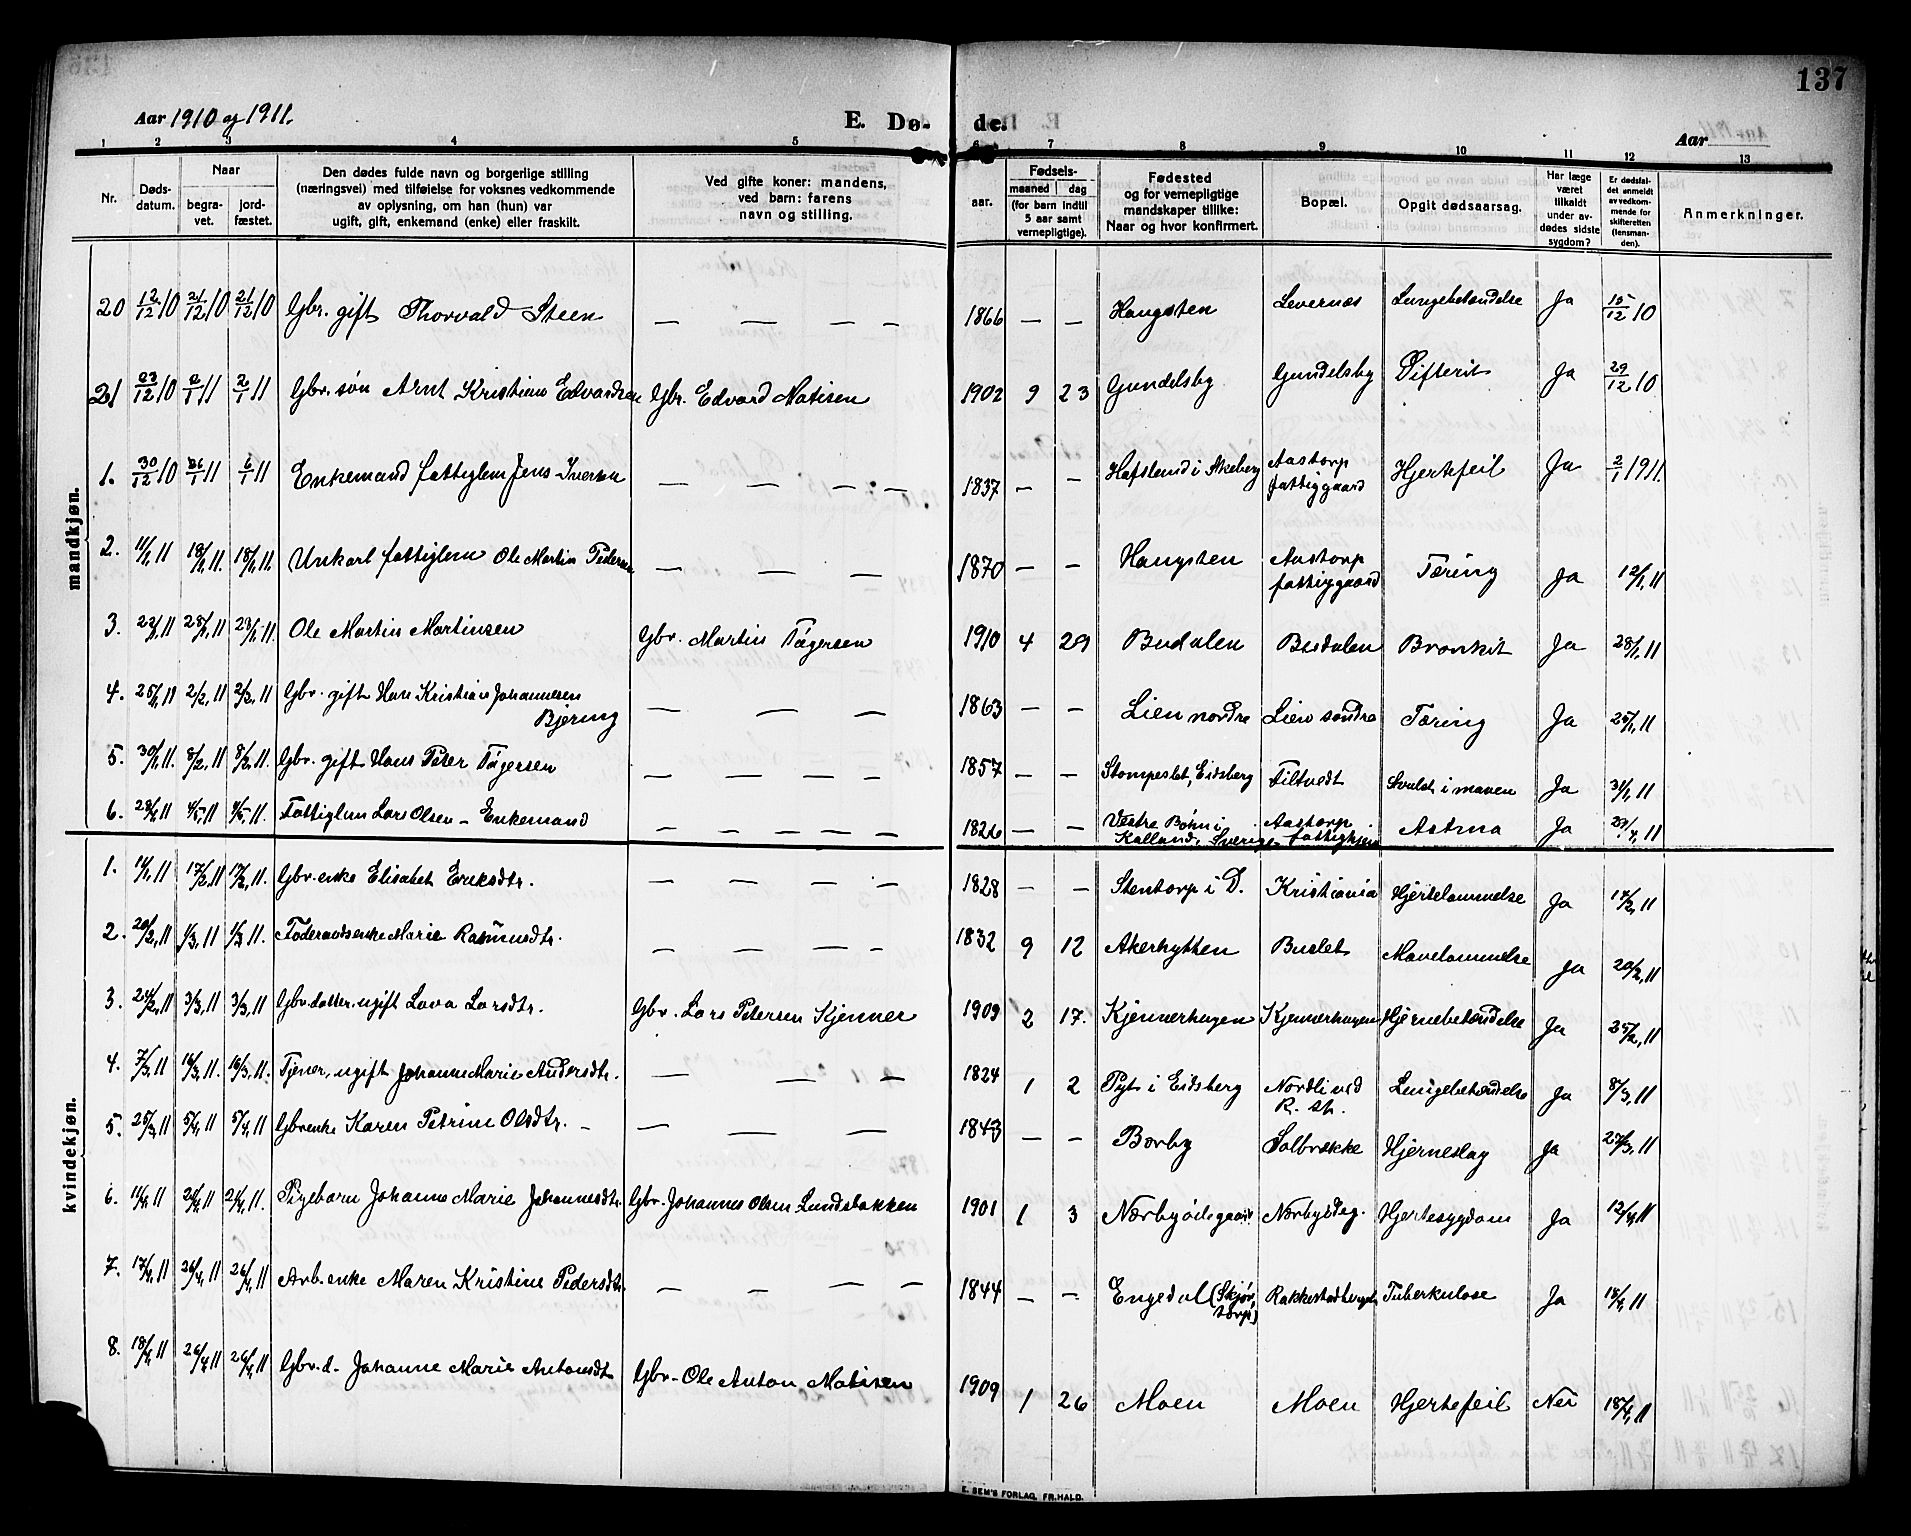 137
Aar 1910 og 1911.
E. Dø-de.
Aar
1 2 3 4 5 6 7 8 9 10 11 12 13
Nr.
Døds-datum.
Naar
begra-vet.
jord-fæstet.
Den dødes fulde navn og borgerlige stilling
(næringsvei) med tilføielse for voksnes vedkommende
av oplysning, om han (hun) var
ugift, gift, enkemand (enke) eller fraskilt.
Ved gifte koner: mandens,
ved barn: farens
navn og stilling.
Fødsels-
aar.
maaned dag
(for barn indtil
5 aar samt
vernepligtige).
Fødested
og for vernepligtige
mandskaper tillike:
Naar og hvor konfirmert.
Bopæl.
Opgit dødsaarsag.
Har læge
været
tilkaldt
under av-
dødes sidste
sygdom?
Er dødsfal-
det anmeldt
av vedkom-
mende for
skifteretten
(lensman-
den).
Anmerkninger.
mandkjøn.
20 12/12 10 21/12 10 21/12 10 Gbr. gift Thorvald Steen — — — — 1866 — — Haugsten Levernæs Lungebetændelse Ja 15/12 10
21 23/12 10 2/1 11 2/1 11 Gbr. søn Arnt Kristian Edvardsen Gbr. Edvard Matisen 1902 9 23 Gundelsby Gundelsby Difterit Ja 29/12 10
1. 30/12 10 6/1 11 6/1 11 Enkemand fattiglem Jens Iversen — — — — 1837 — — Hafslund i Skeberg Aastorp fattiggaard Hjertefeil Ja 2/1 1911.
2. 11/1, 11 18/1, 11. 18/1, 11. Unkarl fattiglem Ole Martin Pedersen — — — 1870 — — Haugsten Aastorp fattiggaard Tæring Ja 12/1, 11
3. 22/1, 11 28/1, 11 23/1, 11 Ole Martin Martinsen Gbr. Martin Tøgersen 1910 4 29 Budalen Budalen Bronkit Ja 28/1, 11
4. 25/1, 11 2/2, 11 2/2, 11 Gbr. gift Hans Kristian Johannesen Bjering — — — 1863 — — Lien nordre Lien søndre Tæring Ja 25/1, 11
5. 30/1, 11. 8/2, 11 8/2, 11. Gbr. gift Hans Peter Tøgersen — — — — 1857 — — Stompeslet, Eidsberg Tiltvedt Svulst i maven Ja 31/1, 11
6. 28/4 11 4/5, 11 4/5, 11. Fattiglem Lars Olsen – Enkemand — — — — — 1826 — — Vestra Bohn i Kalland, Sverige Aastorp fattighjem Astma Ja 29/4, 11
kvindekjøn.
1. 14/1, 11 17/2, 11 17/2, 11. Gbr. enke Elisabet Eriksdtr. — — — — 1828 — — Stentorp i D. Kristiania Hjertelammelse Ja 17/2, 11
2. 20/2, 11 1/3, 11 1/3 11. Føderaadsenke Marie Rasmusdtr. — — — — 1832 9 12 Akerhytten Buslet Mavelammelse Ja 20/2, 11
3. 24/2, 11 3/3, 11 3/3, 11 Gbr. datter, ugift Lova Larsdtr. Gbr. Lars Petersen Kjenner 1909 2 17. Kjennerhagen Kjennerhagen Hjernebetændelse Ja 25/2, 11
4. 7/3, 11 16/3, 11. 16/3, 11. Tjener, ugift Johanne Marie Andersdtr. — — — 1824 1 2 Pyt i Eidsberg Nordli ved R. st. Lungebetændelse Ja 8/3, 11
5. 25/3, 11 5/4, 11 5/4, 11 Gbr. enke Karen Petrine Olsdtr. – — — — 1843 — — Borby Solbrække Hjerneslag Ja 27/3, 11
6. 11/4, 11 21/4, 11 21/4, 11. Pigebarn Johanne Marie Johannesdtr. Gbr. Johannes Olsen Lundsbakken 1901 1 3 Nærbyødegaard Nærbyødeg. Hjertesygdom Ja 12/4, 11
7. 17/4, 11 26/4, 11 26/4, 11 Arb. enke Maren Kristine Pedersdtr. — — — — 1844 — — Engedal (Skjørtorp) Tuberkulose Ja 18/4, 11
8. 18/4, 11 26/4 11 26/4, 11 Gbr. d. Johanne Marie Antonsdtr Gbr. Ole Anton Matisen 1909 1 26 Moen Moen Hjertefeil Nei 18/4, 11
E. SEM'S FORLAG, FR.HALD.